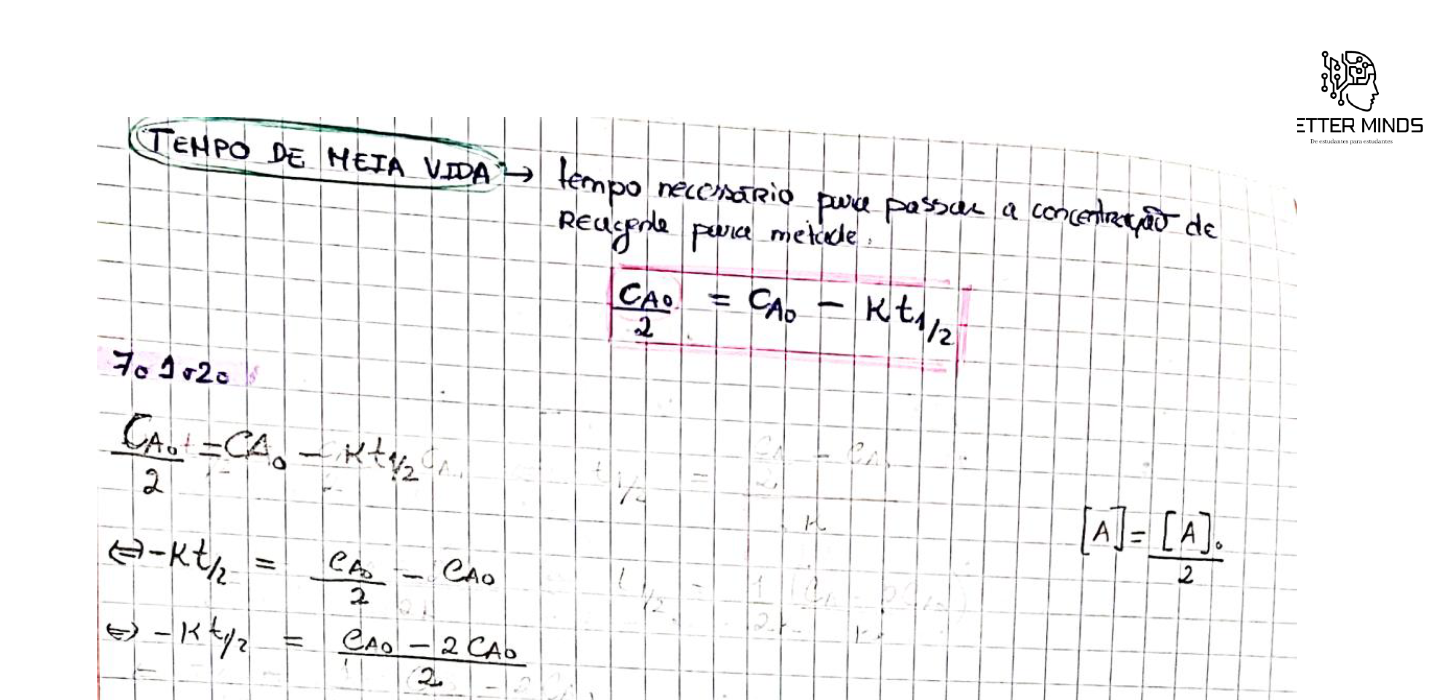 ETTER MINDS
De estudantes para estudantes
TEMPO DE MEIA VIDA → tempo necessário para passar a concentração de
Reagente para metade.
CA0/2 = CA0 - Kt1/2
7.1.2.
CA0/2 = CA0 - Kt1/2
⇔ -Kt1/2 = CA0/2 - CA0
[A] = [A]0/2
⇔ -Kt1/2 = (CA0 - 2CA0)/2